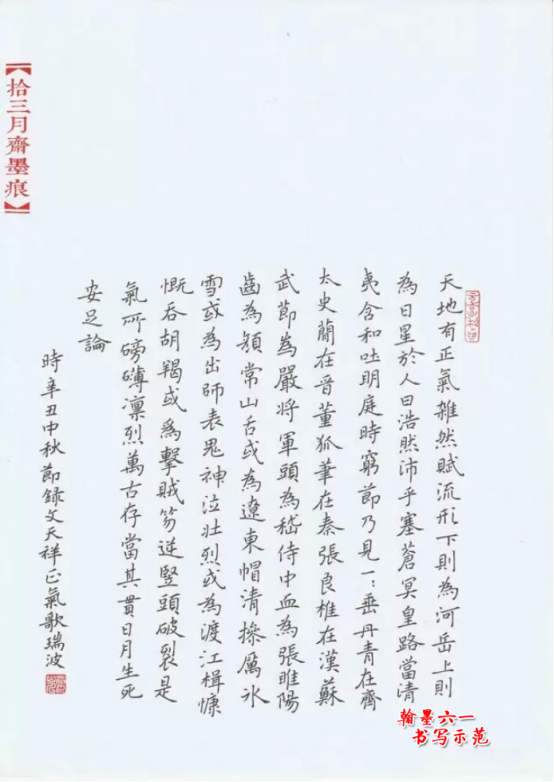 天地有正氣雜然賦流形下則為河岳上則
為日星於人曰浩然沛乎塞蒼冥皇路當清
夷含和吐明庭時窮節乃見一:垂丹青在齊
太史簡在晉董狐筆在秦張良椎在漢蘇
武節為嚴將軍頭為嵇侍中血為張睢陽
齒為顏常山舌或為遼東帽清操厲氷
雪或為出師表鬼神泣壯烈或為渡江楫慷
慨吞胡羯或為擊賊笏逆豎頭破裂是
氣所磅礴凜烈萬古存當其貫日月生死
安足論
時辛丑中秋節錄文天祥正氣歌瑞波
【拾三月齋墨痕】
翰墨六一
书写示范